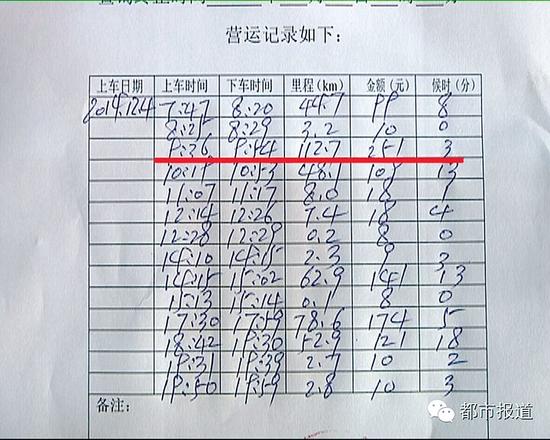 营运记录如下：
上车日期 上车时间 下车时间 里程(km) 金额(元) 候时(分)
2014.12.4 7:47 8:20 44.7 99 8
8:25 8:29 3.2 10 0
9:36 9:54 112.7 251 3
10:19 10:53 48.1 109 13
11:07 11:17 8.0 18 1
12:14 12:26 7.4 18 4
12:28 12:29 0.2 8 0
14:10 14:15 2.3 9 3
14:15 15:02 62.9 141 13
15:13 15:14 0.1 8 0
17:30 17:59 78.6 174 5
18:42 19:30 52.9 121 18
19:31 19:39 2.7 10 2
19:50 19:59 2.8 10 3
备注：
都市报道